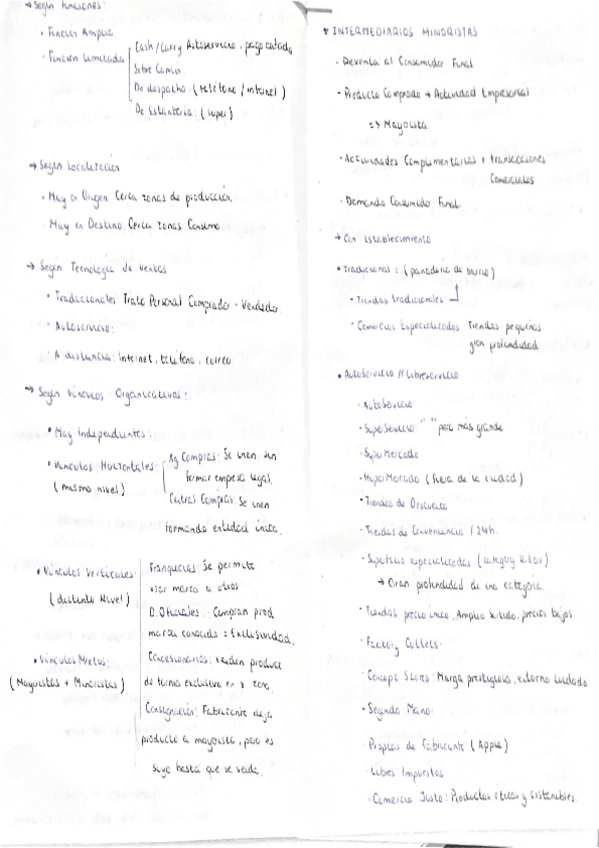 → Según funciones:
• Función Amplia
• Función Limitada
Cash/Carry Autoservicio, pago contado
Sobre Camión
De despacho (teléfono / internet)
De Estantería: (super)
→ Según Localización
• May en Origen Cerca zonas de producción.
• May en Destino Cerca zonas Consumo
→ Según Tecnología de Ventas
• Tradicionales Trato Personal Comprador - Vendedor.
• Autoservicio:
• A distancia: Internet, teléfono, correo
→ Según Vínculos Organizativos:
• May Independientes:
• Vínculos Horizontales:
(mismo nivel)
Ag Compras: Se unen sin
formar empresa legal.
Central Compras: Se unen
formando entidad única.
• Vínculos Verticales:
(distinto Nivel)
• Vínculos Mixtos:
(Mayoristas + Minoristas)
Franquicias: Se permite
usar marca a otros
D. Oficiales: Compran prod
marca conocida = Exclusividad.
Concesionarios: venden producto
de forma exclusiva en x zona.
Consignación: Fabricante deja
producto a mayorista, pero es
suyo hasta que se venda.
INTERMEDIARIOS MINORISTAS
• Reventa al Consumidor Final
• Producto Comprado → Actividad Empresarial
=> Mayorista
• Actividades Complementarias a transacciones
Comerciales
• Demanda Consumidor Final.
→ Con establecimiento
• Tradicional: (panadería de barrio)
• Tiendas tradicionales
• Comercios Especializados Tiendas pequeñas
gran profundidad
• AutoServicio // Libreservicio
• AutoServicio
• SuperServicio " " pero más grande
• SuperMercado
• HiperMercado (fuera de la ciudad)
• Tiendas de Descuento
• Tiendas de Conveniencia / 24h
• especializadas (category killers)
→ Gran profundidad de una categoría.
• Tiendas precio único, Amplio surtido, precios bajos.
• Factory Outlets
• Concept Stores: prestigiosa, entorno cuidado
• Segunda Mano:
• Propias de Fabricante (Apple)
• Libres Impuestos
• Comercio Justo: Productos éticos y sostenibles.